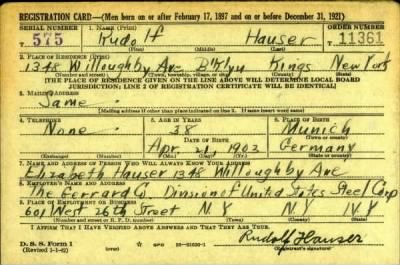 REGISTRATION CARD—(Men born on or after February 17, 1897 and on or before December 31, 1921)
SERIAL NUMBER 1. NAME (Print) ORDER NUMBER
T 575 Rudolf Hauser 11361
(First) (Middle) (Last)
2. PLACE OF RESIDENCE (Print)
1348 Willoughby Ave B'Klyn Kings New York
(Number and street) (Town, township, village, or city) (County) (State)
[THE PLACE OF RESIDENCE GIVEN ON THE LINE ABOVE WILL DETERMINE LOCAL BOARD
JURISDICTION; LINE 2 OF REGISTRATION CERTIFICATE WILL BE IDENTICAL]
3. MAILING ADDRESS
Same
[Mailing address if other than place indicated on line 2. If same insert word same]
4. TELEPHONE 5. AGE IN YEARS 6. PLACE OF BIRTH
None 38 Munich
DATE OF BIRTH (Town or county)
Apr. 21, 1903 Germany
(Exchange) (Number) (Mo.) (Day) (Yr.) (State or country)
7. NAME AND ADDRESS OF PERSON WHO WILL ALWAYS KNOW YOUR ADDRESS
Elizabeth Hauser 1348 Willoughby Ave
8. EMPLOYER'S NAME AND ADDRESS
The Gerrard Co Division of United States Steel Corp
9. PLACE OF EMPLOYMENT OR BUSINESS
601 West 26th Street N.Y N.Y N.Y
(Number and street or R. F. D. number) (Town) (County) (State)
I AFFIRM THAT I HAVE VERIFIED ABOVE ANSWERS AND THAT THEY ARE TRUE.
D. S. S. Form 1
(Revised 1-1-42) GPO Rudolf Hauser
(Registrant's signature)